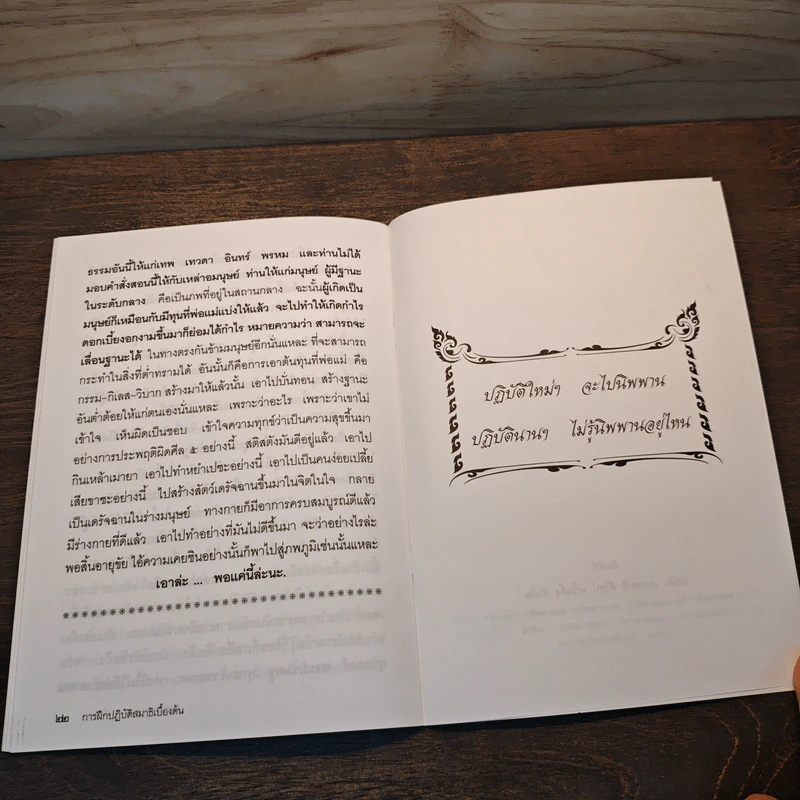 ธรรมอันนี้ให้แก่เทพ เทวดา อินทร์ พรหม และท่านไม่ได้
มอบคำสั่งสอนนี้ให้กับเหล่าอมนุษย์ ท่านให้แก่มนุษย์ ผู้มีฐานะ
ในระดับกลาง คือเป็นภพที่อยู่ในสถานกลาง ฉะนั้นผู้เกิดเป็น
มนุษย์ก็เหมือนกับมีทุนที่พ่อแม่แบ่งให้แล้ว จะไปทำให้เกิดกำไร
ดอกเบี้ยงอกงามขึ้นมาก็ย่อมได้กำไร หมายความว่า สามารถจะ
เลื่อนฐานะได้ ในทางตรงกันข้ามมนุษย์อีกนั่นแหละ ที่จะสามารถ
กระทำในสิ่งที่ต่ำทรามได้ อันนั้นก็คือการเอาต้นทุนที่พ่อแม่ คือ
กรรม-กิเลส-วิบาก สร้างมาให้แล้วนั้น เอาไปบั่นทอน สร้างฐานะ
อันต่ำต้อยให้แก่ตนเองนั่นแหละ เพราะว่าอะไร เพราะว่าเขาไม่
เข้าใจ เห็นผิดเป็นชอบ เข้าใจความทุกข์ว่าเป็นความสุขขึ้นมา
อย่างการประพฤติผิดศีล ๕ อย่างนี้ สติสตังมันดีอยู่แล้ว เอาไป
กินเหล้าเมายา เอาไปทำหยำเปซะอย่างนี้ เอาไปเป็นคนง่อยเปลี้ย
เสียขาซะอย่างนี้ ไปสร้างสัตว์เดรัจฉานขึ้นมาในจิตในใจ กลาย
เป็นเดรัจฉานในร่างมนุษย์ ทางกายก็มีอาการครบสมบูรณ์ดีแล้ว
มีร่างกายที่ดีแล้ว เอาไปทำอย่างที่มันไม่ดีขึ้นมา จะว่าอย่างไรล่ะ
พอสิ้นอายุขัย ไอ้ความเคยชินอย่างนั้นก็พาไปสู่ภพภูมิเช่นนั้นแหละ
เอาล่ะ ... พอแค่นี้ล่ะนะ.
การฝึกปฏิบัติสมาธิเบื้องต้น
ปฏิบัติใหม่ๆ จะไปนิพพาน
ปฏิบัตินานๆ ไม่รู้นิพพานอยู่ไหน